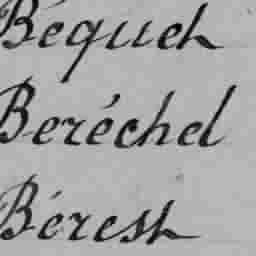 Béqueh
Beréchel
Béresh